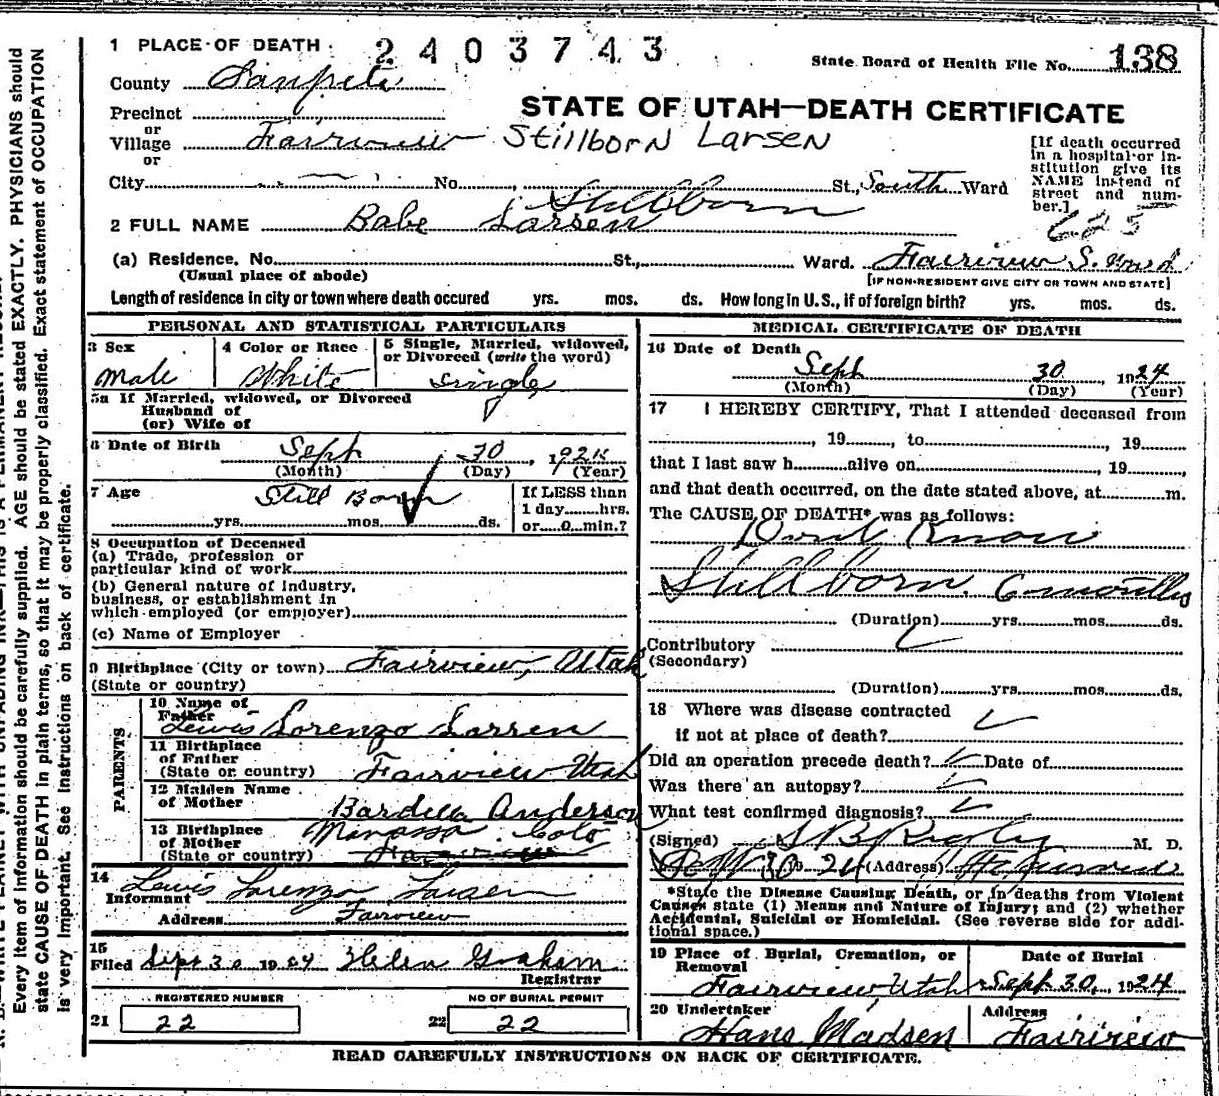 1 PLACE OF DEATH 2403743
State Board of Health File No. 138
County Sanpete
STATE OF UTAH—DEATH CERTIFICATE
Precinct
or
Village Fairview Stillborn Larsen
or
City No. St., South Ward
[If death occurred in a hospital or institution give its NAME instead of street and number.]
625
Stillborn
2 FULL NAME Babe Larsen
(a) Residence. No. St., Ward. Fairview S. Ward
(Usual place of abode) [IF NON-RESIDENT GIVE CITY OR TOWN AND STATE]
Length of residence in city or town where death occured yrs. mos. ds. How long in U.S., if of foreign birth? yrs. mos. ds.
PERSONAL AND STATISTICAL PARTICULARS
3 Sex Male
4 Color or Race White
5 Single, Married, widowed, or Divorced (write the word) Single
5a If Married, widowed, or Divorced
Husband of
(or) Wife of
6 Date of Birth Sept 30, 1924
(Month) (Day) (Year)
7 Age Still Born
yrs. mos. ds.
If LESS than
1 day hrs.
or 0 min.?
8 Occupation of Deceased
(a) Trade, profession or
particular kind of work
(b) General nature of Industry,
business, or establishment in
which employed (or employer)
(c) Name of Employer
9 Birthplace (City or town) Fairview, Utah
(State or country)
PARENTS
10 Name of Father Lewis Lorenzo Larsen
11 Birthplace of Father (State or country) Fairview Utah
12 Maiden Name of Mother Bardella Anderson
13 Birthplace of Mother (State or country) Manassa Colo
14 Informant Lewis Lorenzo Larsen
Address Fairview
15 Filed Sept 30 1924 Helen Graham
Registrar
REGISTERED NUMBER
21 22
NO OF BURIAL PERMIT
22 22
MEDICAL CERTIFICATE OF DEATH
16 Date of Death
Sept 30 1924
(Month) (Day) (Year)
17 I HEREBY CERTIFY, That I attended deceased from
, 19 , to , 19
that I last saw h alive on , 19 ,
and that death occurred, on the date stated above, at m.
The CAUSE OF DEATH* was as follows:
Dont Know
Stillborn. 6 months
(Duration) yrs. mos. ds.
Contributory
(Secondary)
(Duration) yrs. mos. ds.
18 Where was disease contracted
if not at place of death?
Did an operation precede death? Date of
Was there an autopsy?
What test confirmed diagnosis?
(Signed) M. D.
30 24 (Address)
*State the Disease Causing Death, or in deaths from Violent
Causes state (1) Means and Nature of Injury; and (2) whether
Accidental, Suicidal or Homicidal. (See reverse side for addi-
tional space.)
19 Place of Burial, Cremation, or Removal Fairview, Utah
Date of Burial Sept 30, 1924
20 Undertaker Hans Madsen
Address Fairview
READ CAREFULLY INSTRUCTIONS ON BACK OF CERTIFICATE.
Every item of information should be carefully supplied. AGE should be stated EXACTLY. PHYSICIANS should
state CAUSE OF DEATH in plain terms, so that it may be properly classified. Exact statement of OCCUPATION
is very important. See instructions on back of certificate.